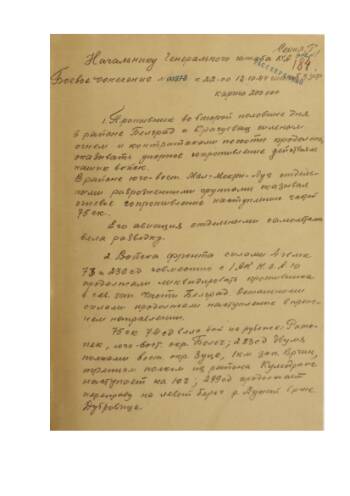 184
Начальнику Генерального штаба КА
Боевое донесение к 22.00 18.10.44
карта 200000
1. Противник во второй половине дня
в районе Белград и Крагуевац сильным
огнем и контратаками пехоты продолжал
оказывать упорное сопротивление действиям
наших войск.
В районе юго-вост. отдель-
ными разрозненными группами оказывал
огневое сопротивление наступлению частей
75 ск.
Его авиация отдельными самолетами
вела разведку.
2. Войска фронта силами 4 гв мк
73 и 236 сд совместно с 1 АК Н.О.А.Ю
продолжали ликвидировать противника
в сев. зап. части Белград, остальными
силами продолжали наступление в преж-
нем направлении.
75 ск 74 сд вела бой на рубеже:
юго-вост. окр. Болеч; 233 сд двумя
полками вост. окр. Зуце, 1 км зап. Врчин,
третьим полком из района
наступает на юг; 299 сд продолжает
переправу на левый берег р.
Дубровица.